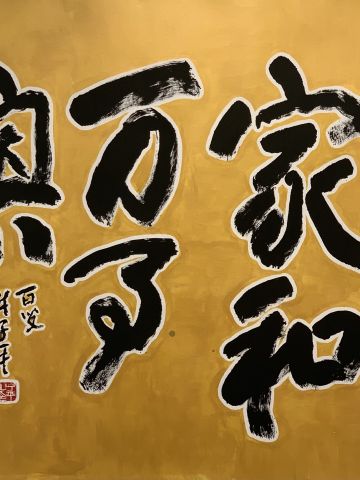 家和
万事
興
百叟